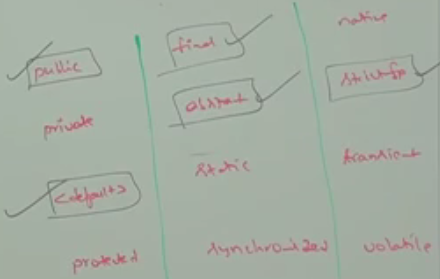 public
private
<default>
protected
final
abstract
static
synchronized
native
strictfp
transient
volatile